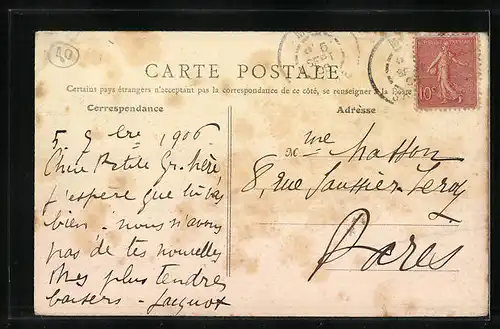 40
CARTE POSTALE
Certains pays étrangers n'acceptant pas la correspondance de ce côté, se renseigner à la Poste
Correspondance
Adresse
5. 9bre 1906
Chère Petite
j'espère que tu vas
bien - nous n'avons
pas de tes nouvelles
Mes plus tendres
baisers - Jacquot
Mme Masson
8, rue Saussier-Leroy
Paris
10c